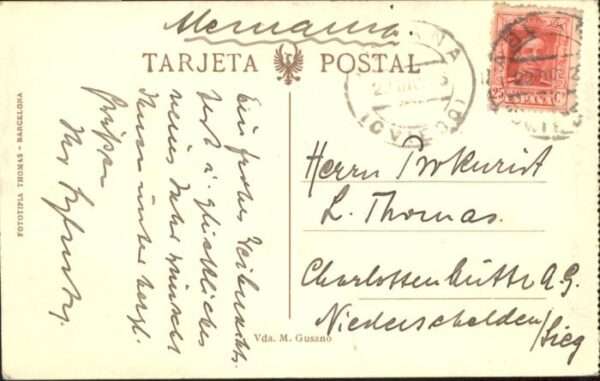 Alemania.
TARJETA POSTAL
ESPAÑA
Ein frohes Weihnachts-
fest u. glückliches
neues Jahr wünscht
Ihnen unter herzl.
Grüßen
Ihr
Herrn Prokurist
L. Thomas.
Charlottenhütte A.G.
Niederschelden/Sieg
Vda. M. Gusano
FOTOTIPIA THOMAS - BARCELONA